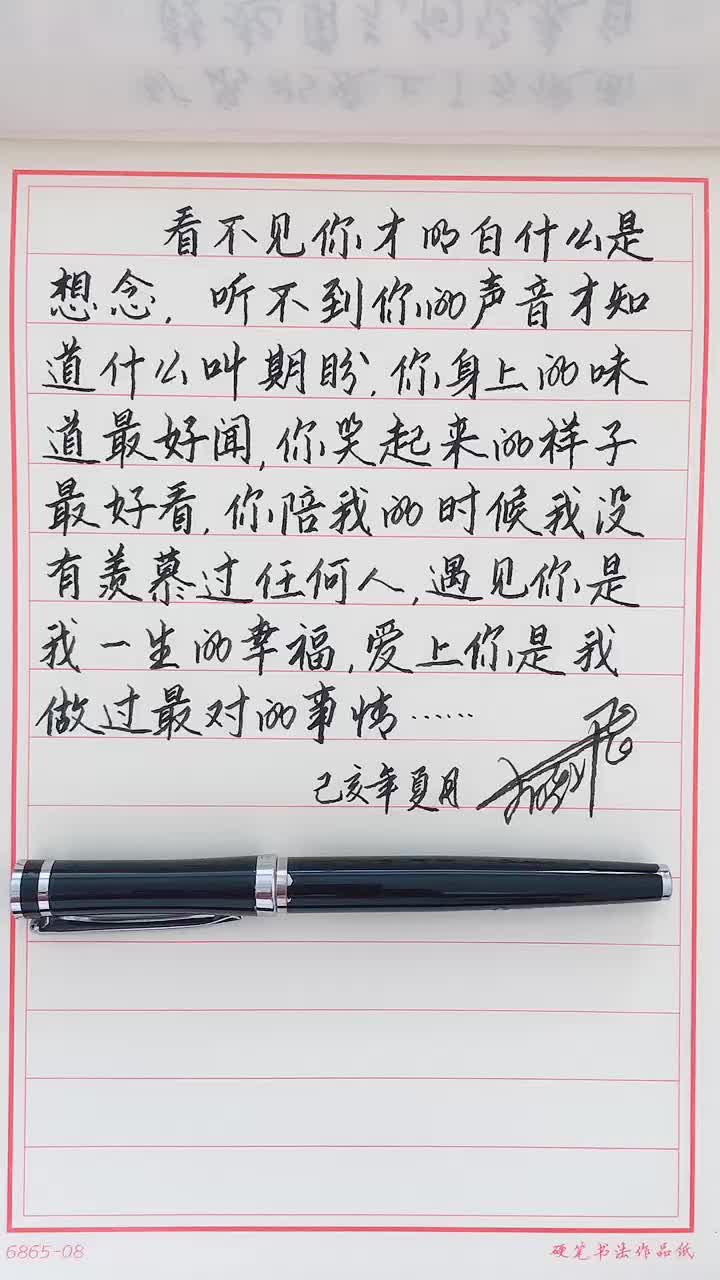 看不见你才明白什么是
想念，听不到你的声音才知
道什么叫期盼，你身上的味
道最好闻，你笑起来的样子
最好看，你陪我的时候我没
有羡慕过任何人，遇见你是
我一生的幸福，爱上你是我
做过最对的事情……
己亥年夏月
6865-08
硬笔书法作品纸